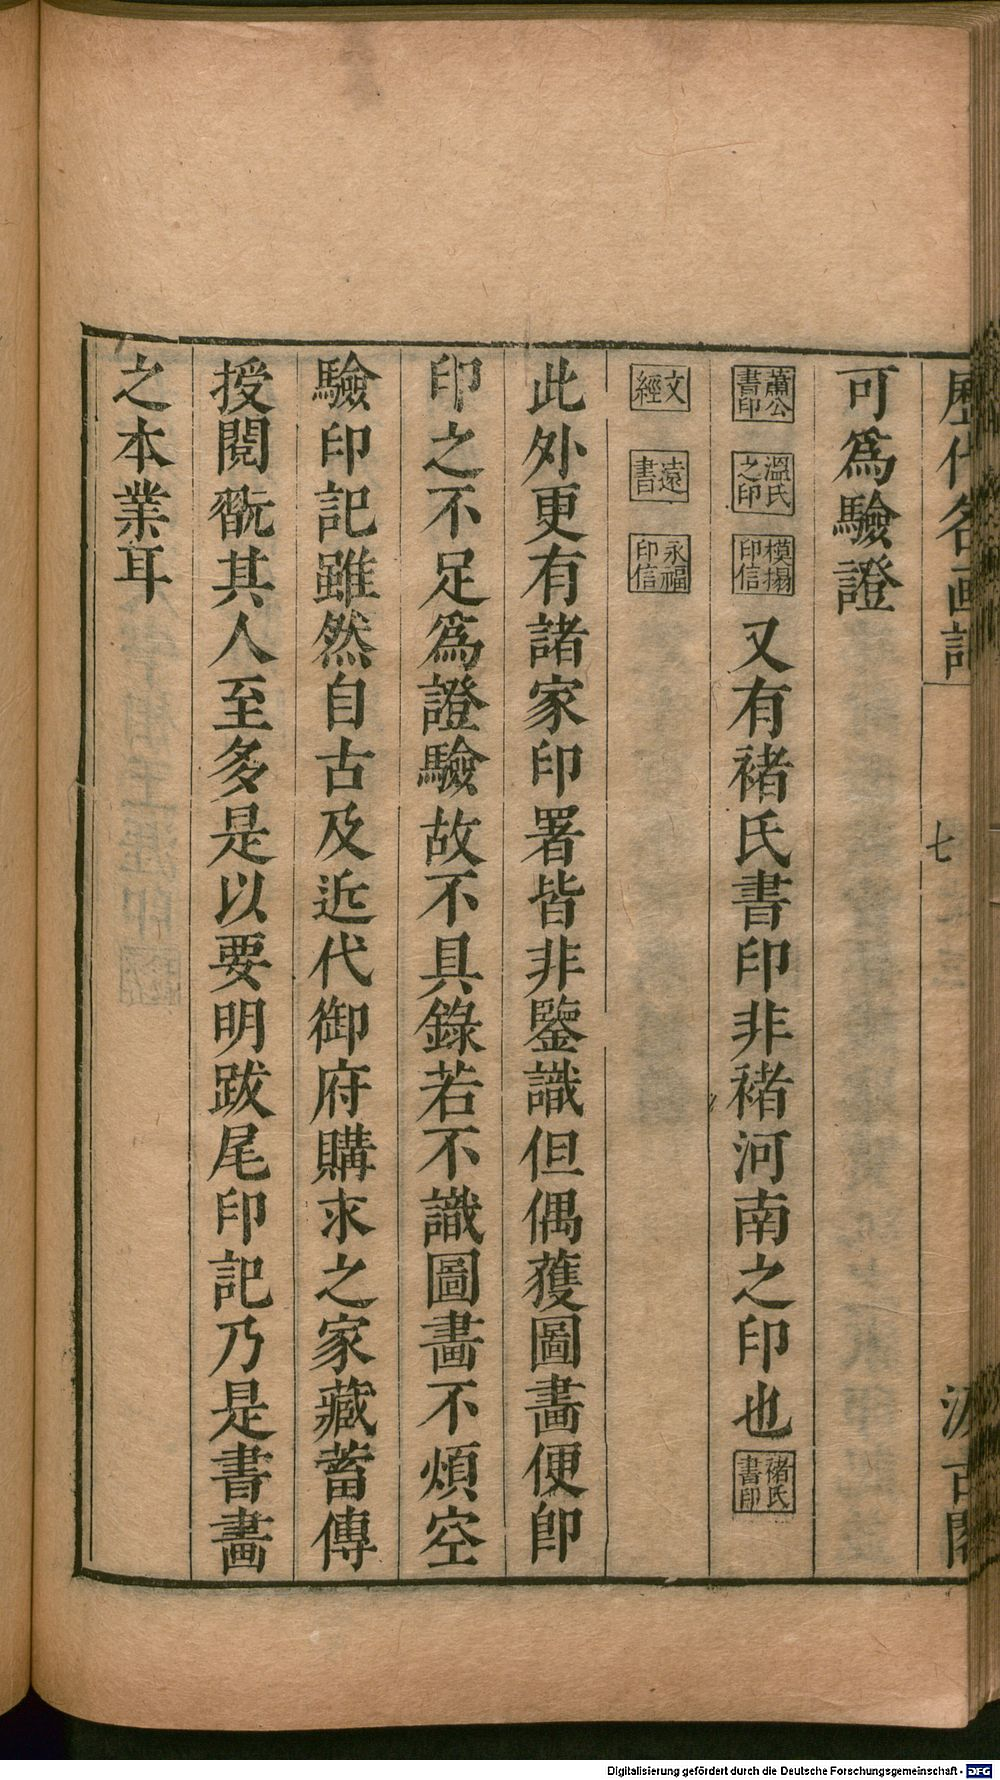 歷代名画記 七 汲古閣
可爲驗證
蕭公書印 溫氏之印 模搨印信 又有褚氏書印非褚河南之印也 褚氏書印
文經 遠書 永福印信
此外更有諸家印署皆非鑒識但偶獲圖畫便即
印之不足爲證驗故不具錄若不識圖畫不煩空
驗印記雖然自古及近代御府購求之家藏蓄傳
授閱翫其人至多是以要明跋尾印記乃是書畫
之本業耳
Digitalisierung gefördert durch die Deutsche Forschungsgemeinschaft - DFG